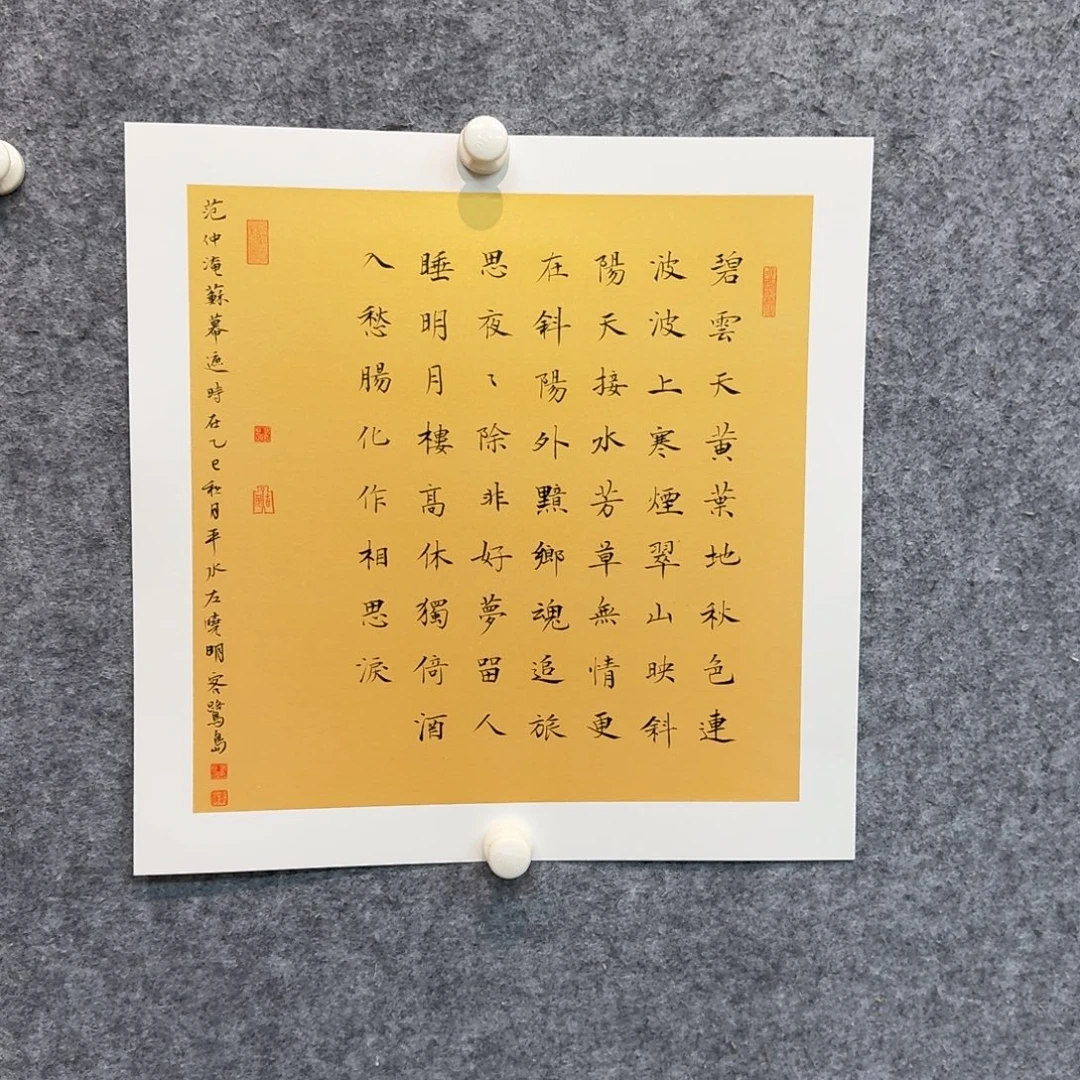 碧雲天黄葉地秋色連
波波上寒煙翠山映斜
陽天接水芳草無情更
在斜陽外黯鄉魂追旅
思夜々除非好夢留人
睡明月樓高休獨倚酒
入愁腸化作相思淚
范仲淹蘇幕遮時在乙巳秋月平水左曉明客鷺島